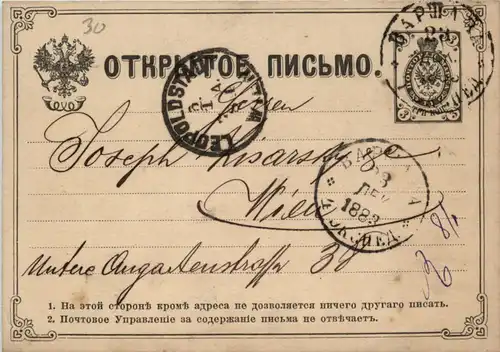 30
ВАРШАВА
23
ОТКРЫТОЕ ПИСЬМО.
LEOPOLDSTADT WIEN
Herrn
Joseph
Wien
23
ДЕК
1883
Untere Augartenstraße 30
1. На этой сторонѣ кромѣ адреса не дозволяется ничего другаго писать.
2. Почтовое Управленіе за содержаніе письма не отвѣчаетъ.